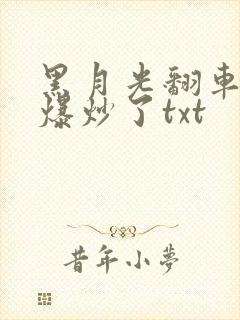 黑月光翻車
爆炒了txt
昔年小夢